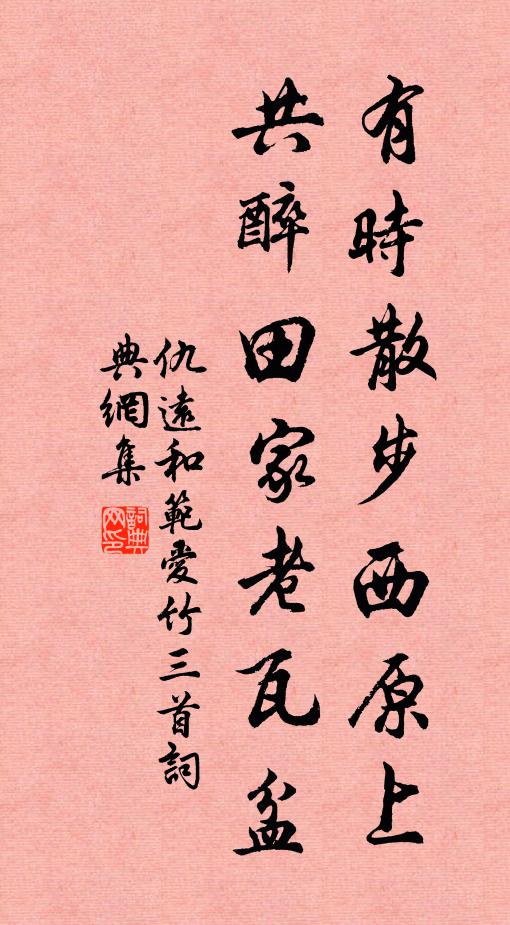 有時散步西原上
共醉田家老瓦盆
仇遠和範愛竹三首詞
典網集
詞典網印